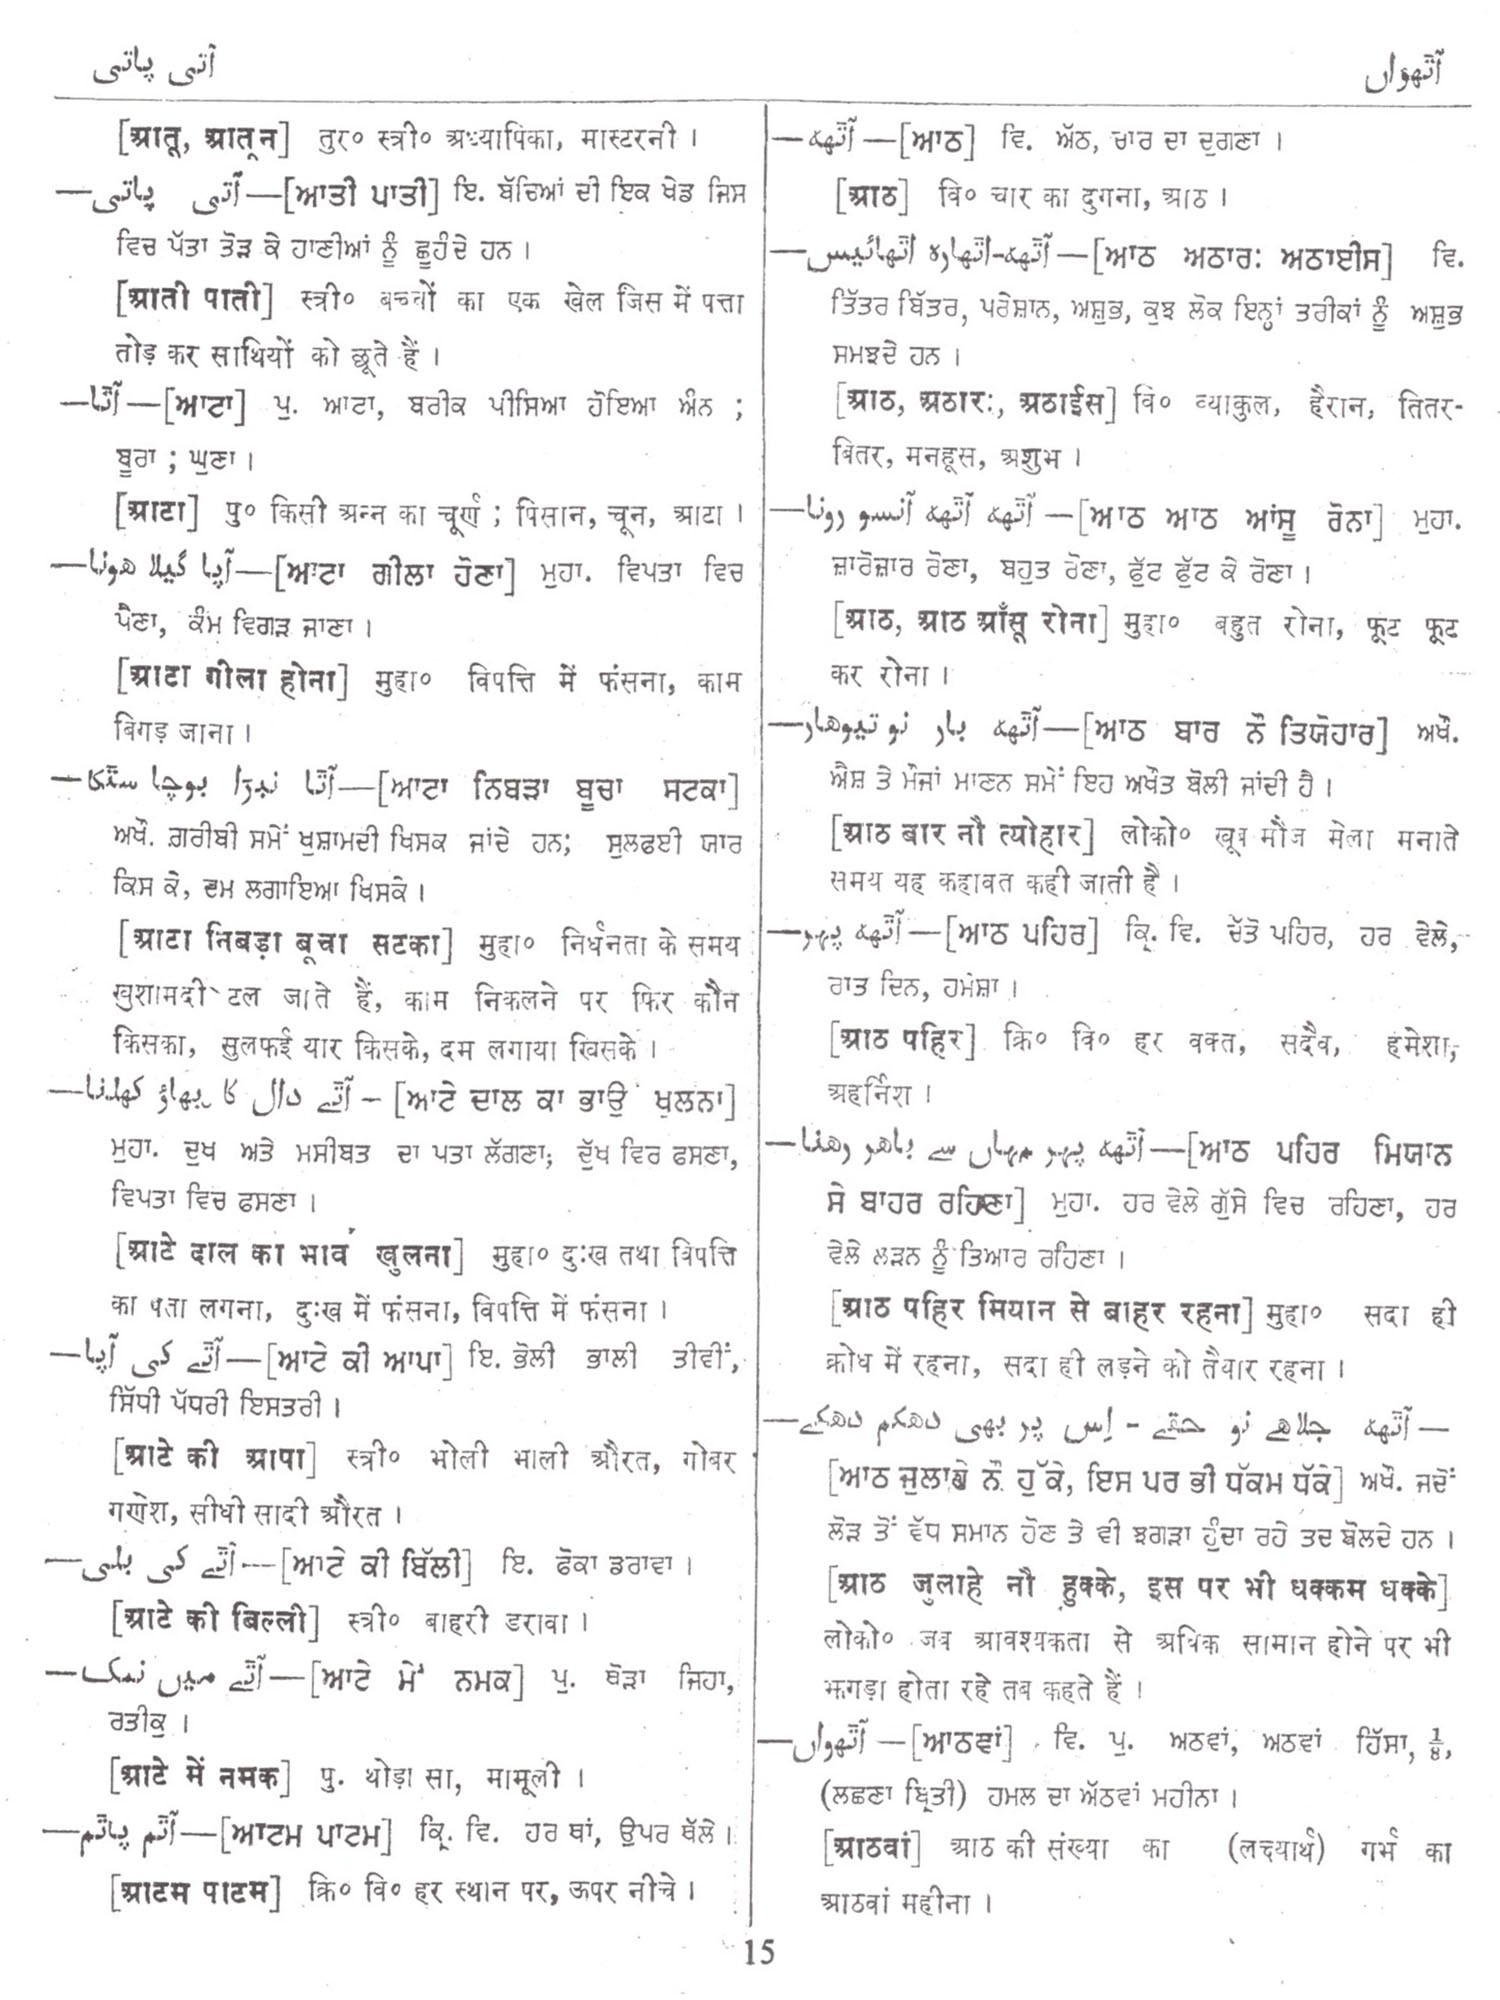 آٹی پاٹی
آٹھواں
[आतू, आतून] तुर० स्त्री० अध्यापिका, मास्टरनी ।
—آتی پاتی—[ਆਤੀ ਪਾਤੀ] ਇ. ਬੱਚਿਆਂ ਦੀ ਇਕ ਖੇਡ ਜਿਸ
ਵਿਚ ਪੱਤਾ ਤੋੜ ਕੇ ਹਾਣੀਆਂ ਨੂੰ ਛੂਹੰਦੇ ਹਨ ।
[आती पाती] स्त्री० बच्चों का एक खेल जिस में पत्ता
तोड़ कर साथियों को छूते हैं ।
—آٹا—[ਆਟਾ] ਪੁ. ਆਟਾ, ਬਰੀਕ ਪੀਸਿਆ ਹੋਇਆ ਅੰਨ ;
ਬੂਰਾ ; ਘੁਣਾ ।
[आटा] पु० किसी अन्न का चूर्ण ; पिसान, चून, आटा ।
—آٹا گیلا ہونا—[ਆਟਾ ਗੀਲਾ ਹੋਣਾ] ਮੁਹਾ. ਵਿਪਤਾ ਵਿਚ
ਪੈਣਾ, ਕੰਮ ਵਿਗੜ ਜਾਣਾ ।
[आटा गीला होना] मुहा० विपत्ति में फंसना, काम
बिगड़ जाना ।
—آٹا نبڑا بوچا سٹکا—[ਆਟਾ ਨਿਬੜਾ ਬੂਚਾ ਸਟਕਾ]
ਅਖੌ. ਗ਼ਰੀਬੀ ਸਮੇਂ ਖੁਸ਼ਾਮਦੀ ਖਿਸਕ ਜਾਂਦੇ ਹਨ; ਸੁਲਫਈ ਯਾਰ
ਕਿਸ ਕੇ, ਦਮ ਲਗਾਇਆ ਖਿਸਕੇ ।
[आटा निबड़ा बूचा सटका] मुहा० निर्धनता के समय
खुशामदी टल जाते हैं, काम निकलने पर फिर कौन
किसका, सुलफई यार किसके, दम लगाया खिसके ।
—آٹے دال کا بھاؤ کھلنا – [ਆਟੇ ਦਾਲ ਕਾ ਭਾਉ ਖੁਲਨਾ]
ਮੁਹਾ. ਦੁਖ ਅਤੇ ਮਸੀਬਤ ਦਾ ਪਤਾ ਲੱਗਣਾ; ਦੁੱਖ ਵਿਰ ਫਸਣਾ,
ਵਿਪਤਾ ਵਿਚ ਫਸਣਾ ।
[आटे दाल का भाव खुलना] मुहा० दुःख तथा विपत्ति
का पता लगना, दुःख में फंसना, विपत्ति में फंसना ।
—آٹے کی آپا—[ਆਟੇ ਕੀ ਆਪਾ] ਇ. ਭੋਲੀ ਭਾਲੀ ਤੀਵੀਂ,
ਸਿੱਧੀ ਪੱਧਰੀ ਇਸਤਰੀ ।
[आटे की आपा] स्त्री० भोली भाली औरत, गोबर
गणेश, सीधी सादी औरत ।
—آٹے کی بلی—[ਆਟੇ ਕੀ ਬਿੱਲੀ] ਇ. ਫੋਕਾ ਡਰਾਵਾ ।
[आटे की बिल्ली] स्त्री० बाहरी डरावा ।
—آٹے میں نمک—[ਆਟੇ ਮੇਂ ਨਮਕ] ਪੁ. ਥੋੜਾ ਜਿਹਾ,
ਰਤੀਕੁ ।
[आटे में नमक] पु. थोड़ा सा, मामूली ।
—آٹم پاٹم—[ਆਟਮ ਪਾਟਮ] ਕ੍ਰਿ. ਵਿ. ਹਰ ਥਾਂ, ਉਪਰ ਥੱਲੇ ।
[आटम पाटम] क्रि० वि० हर स्थान पर, ऊपर नीचे ।
—آٹھ—[ਆਠ] ਵਿ. ਅੱਠ, ਚਾਰ ਦਾ ਦੁਗਣਾ ।
[आठ] वि० चार का दुगना, आठ ।
—آٹھ-اٹھارہ اٹھائیس—[ਆਠ ਅਠਾਰ: ਅਠਾਈਸ] ਵਿ.
ਤਿੱਤਰ ਬਿੱਤਰ, ਪਰੇਸ਼ਾਨ, ਅਸ਼ੁਭ, ਕੁਝ ਲੋਕ ਇਨ੍ਹਾਂ ਤਰੀਕਾਂ ਨੂੰ ਅਸ਼ੁਭ
ਸਮਝਦੇ ਹਨ ।
[आठ, अठारः, अठाईस] वि० व्याकुल, हैरान, तितर-
बितर, मनहूस, अशुभ ।
—آٹھ آٹھ آنسو رونا—[ਆਠ ਆਠ ਆਂਸੂ ਰੋਨਾ] ਮੁਹਾ.
ਜ਼ਾਰੋਜ਼ਾਰ ਰੋਣਾ, ਬਹੁਤ ਰੋਣਾ, ਫੁੱਟ ਫੁੱਟ ਕੇ ਰੋਣਾ ।
[आठ, आठ आँसू रोना] मुहा० बहुत रोना, फूट फूट
कर रोना ।
—آٹھ بار نو تیوھار—[ਆਠ ਬਾਰ ਨੌ ਤਿਯੋਹਾਰ] ਅਖੌ.
ਐਸ਼ ਤੇ ਮੌਜਾਂ ਮਾਣਨ ਸਮੇਂ ਇਹ ਅਖੌਤ ਬੋਲੀ ਜਾਂਦੀ ਹੈ ।
[आठ बार नौ त्योहार] लोको० खूब मौज मेला मनाते
समय यह कहावत कही जाती है ।
—آٹھ پہر—[ਆਠ ਪਹਿਰ] ਕ੍ਰਿ. ਵਿ. ਚੱਤੋ ਪਹਿਰ, ਹਰ ਵੇਲੇ,
ਰਾਤ ਦਿਨ, ਹਮੇਸ਼ਾ ।
[आठ पहिर] क्रि० वि० हर वक्त, सदैव, हमेशा,
अहर्निश ।
—آٹھ پہر میاں سے باہر رہنا—[ਆਠ ਪਹਿਰ ਮਿਯਾਨ
ਸੇ ਬਾਹਰ ਰਹਿਣਾ] ਮੁਹਾ. ਹਰ ਵੇਲੇ ਗੁੱਸੇ ਵਿਚ ਰਹਿਣਾ, ਹਰ
ਵੇਲੇ ਲੜਨ ਨੂੰ ਤਿਆਰ ਰਹਿਣਾ ।
[आठ पहिर मियान से बाहर रहना] मुहा० सदा ही
क्रोध में रहना, सदा ही लड़ने को तैयार रहना ।
—آٹھ جلاھے نو حقے - اِس پر بھی دھکم دھکے—
[ਆਠ ਜੁਲਾਖੇ ਨੌ ਹੁੱਕੇ, ਇਸ ਪਰ ਭੀ ਧੱਕਮ ਧੱਕੇ] ਅਖੌ. ਜਦੋਂ
ਲੋੜ ਤੋਂ ਵੱਧ ਸਮਾਨ ਹੋਣ ਤੇ ਵੀ ਝਗੜਾ ਹੁੰਦਾ ਰਹੇ ਤਦ ਬੋਲਦੇ ਹਨ ।
[आठ जुलाहे नौ हुक्के, इस पर भी धक्कम धक्के]
लोको० जब आवश्यकता से अधिक सामान होने पर भी
झगड़ा होता रहे तब कहते हैं ।
—آٹھواں—[ਆਠਵਾਂ] ਵਿ. ਪੁ. ਅਠਵਾਂ, ਅਠਵਾਂ ਹਿੱਸਾ, ⅛,
(ਲਛਣਾ ਬ੍ਰਿਤੀ) ਹਮਲ ਦਾ ਅੱਠਵਾਂ ਮਹੀਨਾ ।
[आठवां] आठ की संख्या का (लक्ष्यार्थ) गर्भ का
आठवां महीना ।
15